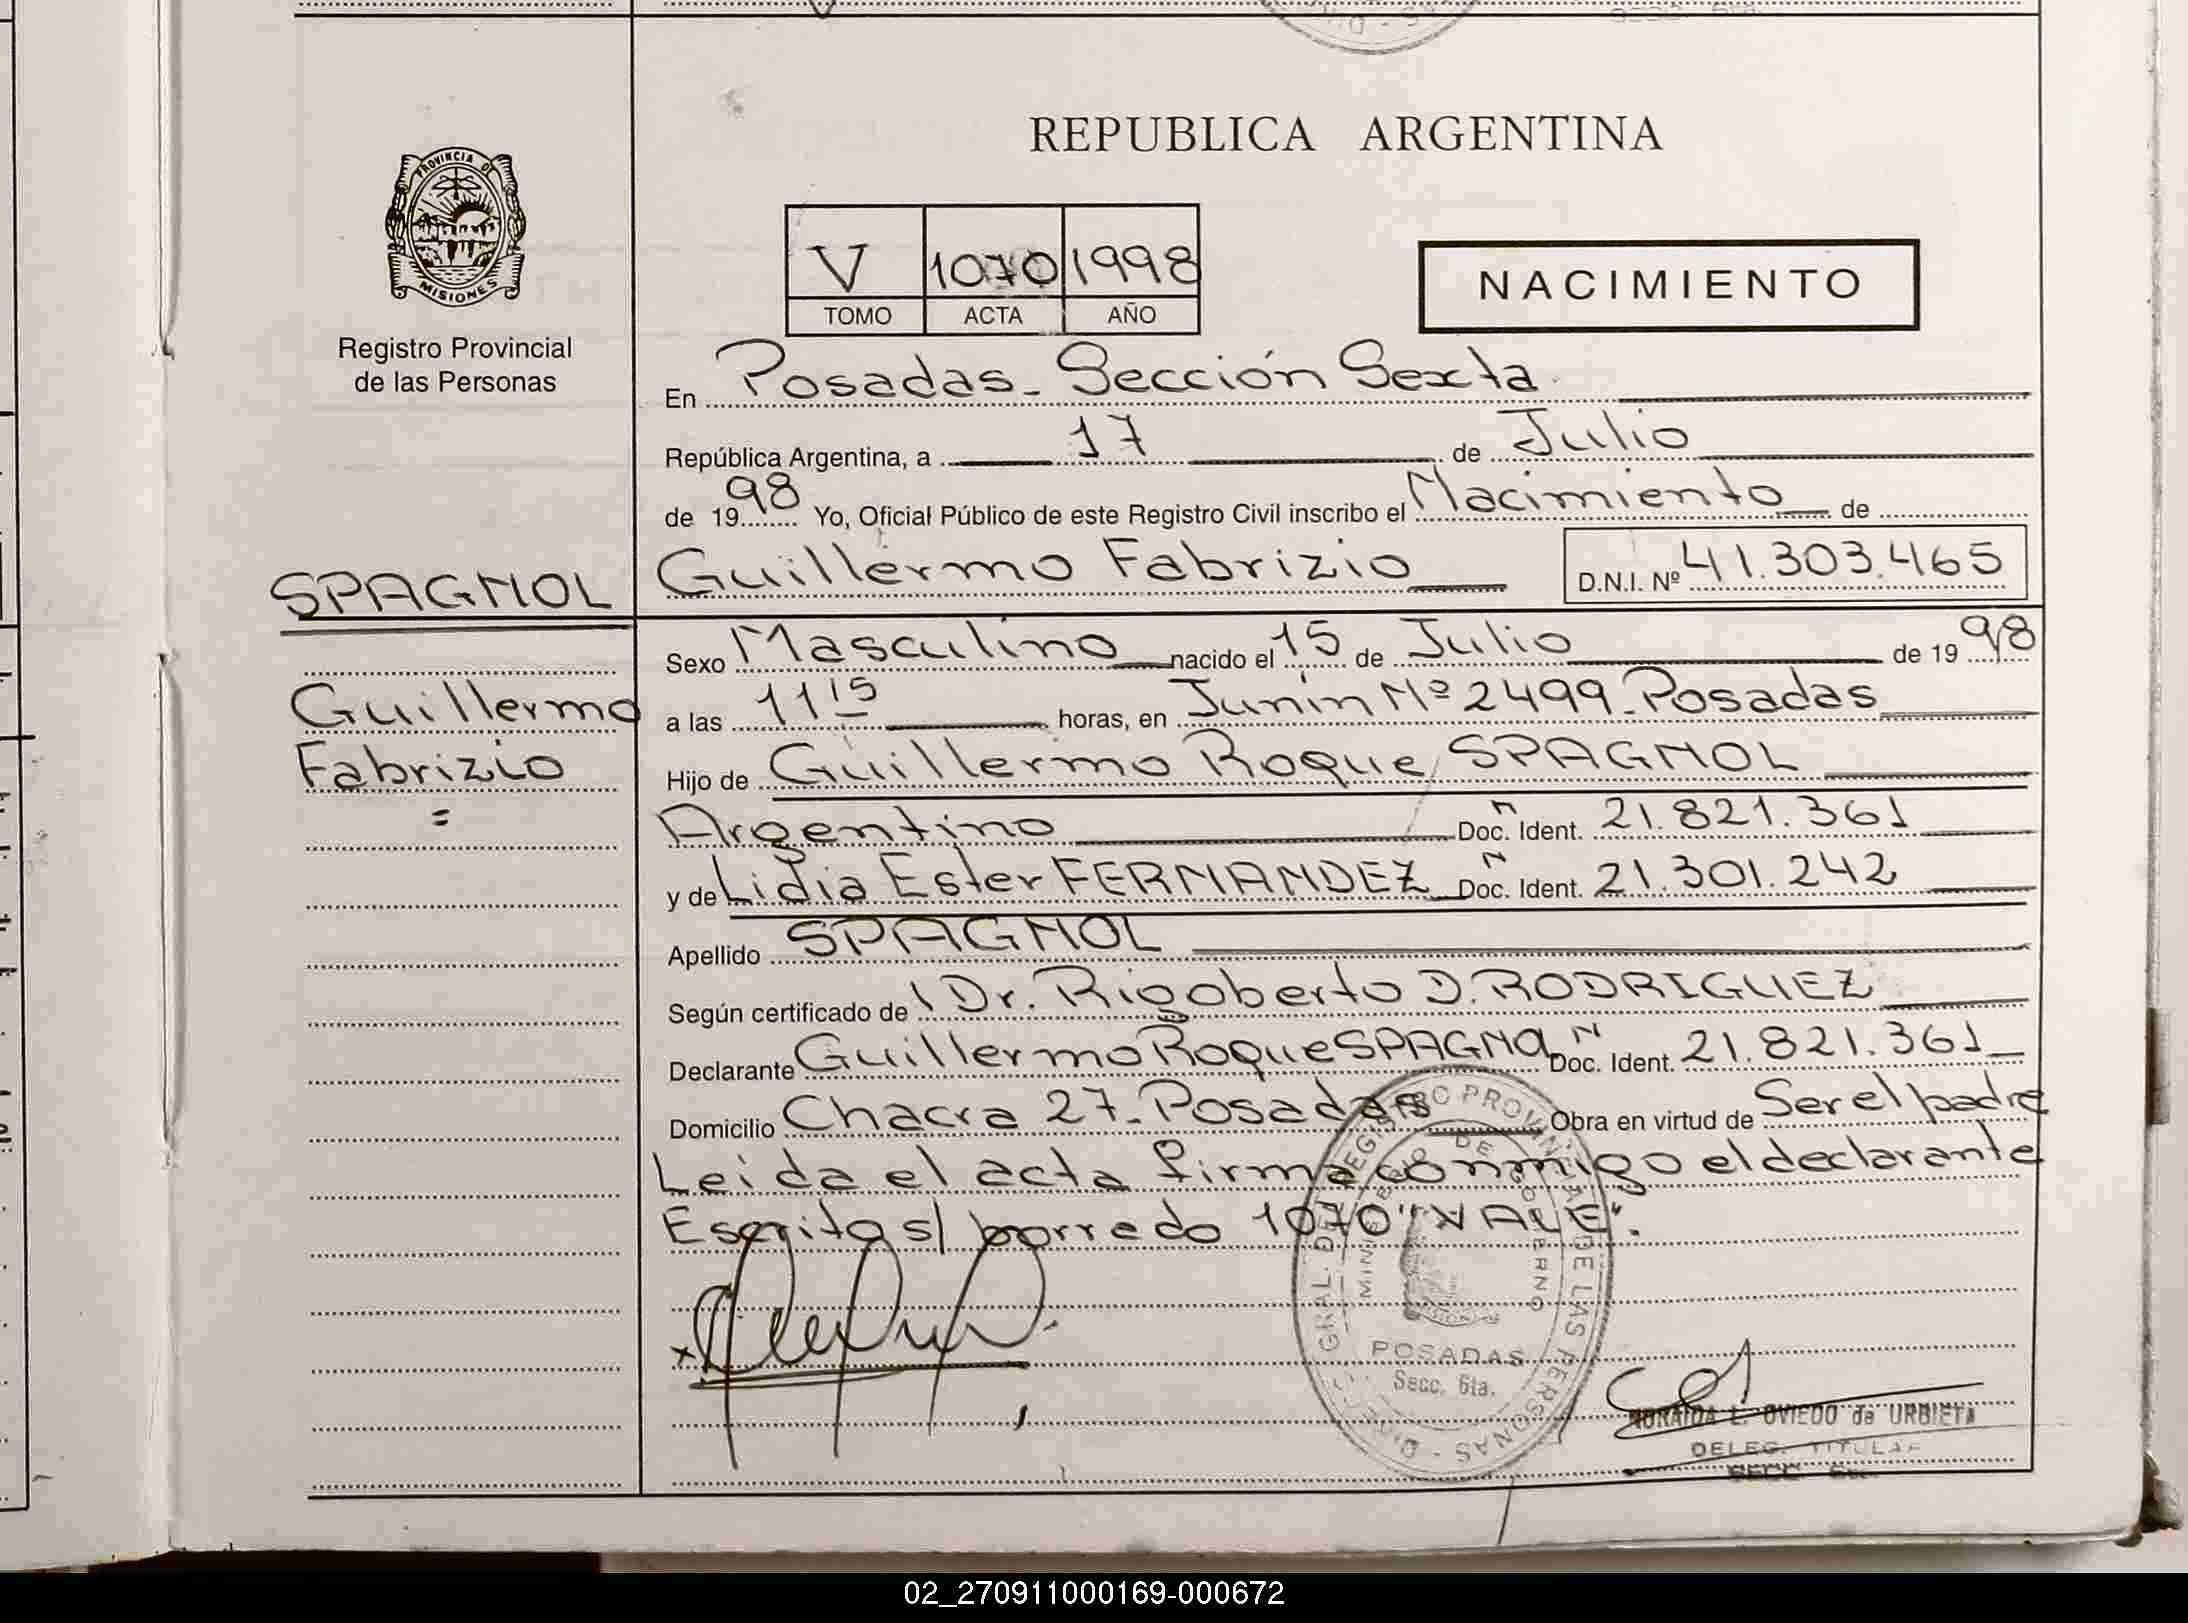 REPUBLICA ARGENTINA
PROVINCIA DE
MISIONES
Registro Provincial
de las Personas
V 1070 1998
TOMO ACTA AÑO
NACIMIENTO
En Posadas - Sección Sexta
República Argentina, a 17 de Julio
de 1998 Yo, Oficial Público de este Registro Civil inscribo el Nacimiento de
Guillermo Fabrizio D.N.I. Nº 41.303.465
SPAGNOL
Guillermo
Fabrizio
=
Sexo Masculino nacido el 15 de Julio de 1998
a las 11 15 horas, en Junín Nº 2499 - Posadas
Hijo de Guillermo Roque SPAGNOL
Argentino Doc. Ident. N 21.821.361
y de Lidia Ester FERNANDEZ Doc. Ident. N 21.301.242
Apellido SPAGNOL
Según certificado de l Dr. Rigoberto D. RODRIGUEZ
Declarante Guillermo Roque SPAGNOL Doc. Ident. N 21.821.361
Domicilio Chacra 27 - Posadas Obra en virtud de Ser el padre
Leida el acta firma conmigo el declarante
Escrito s/ borredo 1070 "VALE".
POSADAS
Secc. 6ta.
L. OVIEDO de URBIETA
DELEG. TITULAR
SECC 6ta.
02_270911000169-000672